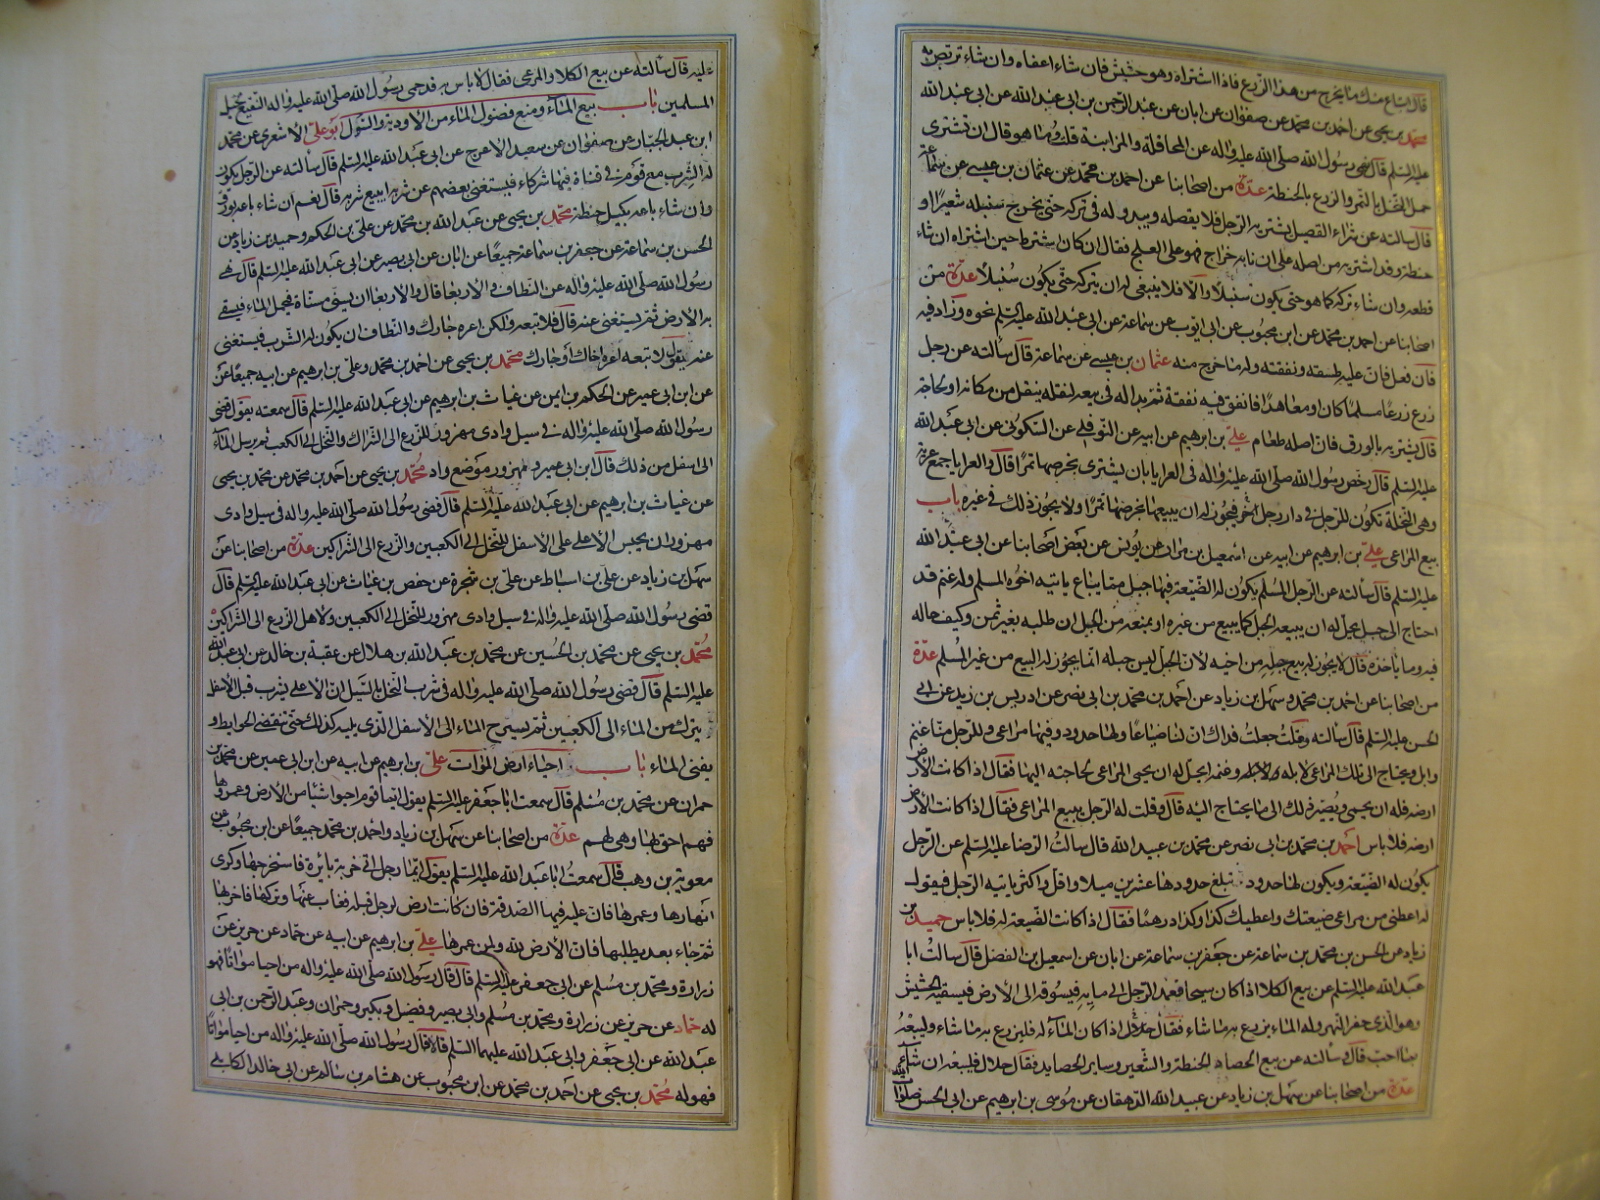 قال تبتاع منك ما يخرج من هذا الزرع فاذا اشتراه وهو حشيش فان شاء اعفاه وان شاء تربص به
محمد بن يحيى عن احمد بن محمد عن صفوان عن ابان عن عبد الرحمن بن ابى عبد الله عن ابى عبد الله
عليه السلم قال نهى رسول الله صلى الله عليه واله عن المحاقلة والمزابنة قلت وما هو قال ان تشترى
حمل النخل بالتمر والزرع بالحنطة عدة من اصحابنا عن احمد بن محمد عن عثمان بن عيسى عن سماعة
قال سالته عن شراء القصيل يشتريه الرجل فلا يقصله ويبدو له فى تركه حتى يخرج سنبله شعيرا او
حنطة وقد اشتريه من اصله على ان ما به خراج فهو على العلج فقال ان كان يشترط حين اشتراه ان شاء
قطعه وان شاء تركه كما هو حتى يكون سنبلا والا فلا ينبغى له ان يتركه حتى يكون سنبلا عدة من
اصحابنا عن احمد بن محمد عن ابن محبوب عن ابى ايوب عن سماعة عن ابى عبد الله عليه السلم نحوه وزاد فيه
فان فعل فان عليه طسقه ونفقته وله ما خرج منه عثمان بن عيسى عن سماعة قال سالته عن رجل
زرع زرعا مسلما كان او معاهدا فانفق فيه نفقة ثم بدا له فى بيعه لنقله ينقل من مكانه او لحاجة
قال يشتريه بالورق فان اصله طعام على بن ابرهيم عن ابيه عن النوفلى عن السكونى عن ابى عبد الله
عليه السلم قال رخص رسول الله صلى الله عليه واله فى العرايا بان يشترى بخرصها تمرا قال والعرايا جمع عرية
وهى النخلة تكون للرجل فى دار رجل اخر فيجوز له ان يبيعها بخرصها تمرا ولا يجوز ذلك فى غيره باب
بيع المراعى على بن ابرهيم عن ابيه عن اسمعيل بن مرار عن يونس عن بعض اصحابنا عن ابى عبد الله
عليه السلم قال سالته عن الرجل المسلم يكون له الضيعة فيها جبل مما يباع ياتيه اخوه المسلم وله غنم قد
احتاج الى جبل يحل له ان يبيعه الجبل كما يبيع من غيره او يمنعه من الجبل ان طلبه بغير ثمن وكيف حاله
فيه وما ياخذه قال لا يجوز له بيع جبله من اخيه لان الجبل ليس جبله انما يجوز له البيع من غير المسلم عدة
من اصحابنا عن احمد بن محمد وسهل بن زياد عن احمد بن محمد بن ابى نصر عن ادريس بن زيد عن ابى
الحسن عليه السلم قال سالته وقلت جعلت فداك ان لنا ضياعا ولها حدود وفيها مراعى وللرجل منا غنم
وابل ويحتاج الى تلك المراعى لابله وغنمه ايحل له ان يحمى المراعى لحاجته اليها فقال اذا كانت الارض
ارضه فله ان يحمى ويصير ذلك الى ما يحتاج اليه قال وقلت له الرجل يبيع المراعى فقال اذا كانت الارض
ارضه فلا باس احمد بن محمد بن ابى نصر عن محمد بن عبيد الله قال سالت الرضا عليه السلم عن الرجل
يكون له الضيعة ويكون لها حدود تبلغ حدودها عشرين ميلا واقل واكثر ياتيه الرجل فيقول
له اعطنى من مراعى ضيعتك واعطيك كذا وكذا درهما فقال اذا كانت الضيعة له فلا باس حميد بن
زياد عن الحسن بن محمد بن سماعة عن جعفر بن سماعة عن ابان عن اسمعيل بن الفضل قال سالت ابا
عبد الله عليه السلم عن بيع الكلا اذا كان سيحا فيعمد الرجل الى مايه فيسوقه الى الارض فيسقيه الحشيش
وهو الذى حفر النهر وله الماء يزرع به ما شاء فقال اذا كان الماء له فليزرع به ما شاء وليبعه
بما احب قال وسالته عن بيع الحصاد الحنطة والشعير وساير الحصايد فقال حلال فليبعه ان شاء
عدة من اصحابنا عن سهل بن زياد عن عبيد الله الدهقان عن موسى بن ابرهيم عن ابى الحسن صلوات الله
عليه قال سالته عن بيع الكلا والمرعى فقال لا باس به قد حمى رسول الله صلى الله عليه واله النقيع لخيل
المسلمين باب بيع الماء ومنع فضول الماء من الاودية والسيول ابو على الاشعرى عن محمد
ابن عبد الجبار عن صفوان عن سعيد الاعرج عن ابى عبد الله عليه السلم قال سالته عن الرجل يكون
له الشرب مع قوم فى قناة فيها شركاء فيستغنى بعضهم عن شربه ايبيع شربه قال نعم ان شاء باعه بورق
وان شاء باعه بكيل حنطة محمد بن يحيى عن عبد الله بن محمد عن على بن الحكم وحميد بن زياد عن
الحسن بن سماعة عن جعفر بن سماعة جميعا عن ابان عن ابى بصير عن ابى عبد الله عليه السلم قال نهى
رسول الله صلى الله عليه واله عن النطاف والاربعا قال والاربعا ان يسنى مسناة فيحمل الماء فيسقى
به الارض ثم يستغنى عنه قال فلا تبعه ولكن اعره جارك والنطاف ان يكون له الشرب فيستغنى
عنه يقول لا تبعه اعره اخاك او جارك محمد بن يحيى عن احمد بن محمد وعلى بن ابرهيم عن ابيه جميعا عن
عن ابن ابى عمير عن الحكم بن ايمن عن غياث بن ابرهيم عن ابى عبد الله عليه السلم قال سمعته يقول قضى
رسول الله صلى الله عليه واله فى سيل وادى مهزور للزرع الى الشراك والنخل الى الكعب ثم يرسل الماء
الى اسفل من ذلك قال ابن ابى عمير ومهزور موضع واد محمد بن يحيى عن احمد بن محمد عن محمد بن يحيى
عن غياث بن ابرهيم عن ابى عبد الله عليه السلم قال قضى رسول الله صلى الله عليه واله فى سيل وادى
مهزور ان يحبس الاعلى على الاسفل للنخل الى الكعبين والزرع الى الشراكين عدة من اصحابنا عن
سهل بن زياد عن على بن اسباط عن على بن شجرة عن حفص بن غياث عن ابى عبد الله عليه السلم قال
قضى رسول الله صلى الله عليه واله فى سيل وادى مهزور للنخل الى الكعبين ولاهل الزرع الى الشراكين
محمد بن يحيى عن محمد بن الحسين عن محمد بن عبد الله بن هلال عن عقبة بن خالد عن ابى عبد الله
عليه السلم قال قضى رسول الله صلى الله عليه واله فى شرب النخل بالسيل ان الاعلى يشرب قبل الاسفل
يترك من الماء الى الكعبين ثم يسرح الماء الى الاسفل الذى يليه كذلك حتى تنقضى الحوايط و
يفنى الماء باب احياء ارض الموات على بن ابرهيم عن ابيه عن ابن ابى عمير عن محمد بن
حمران عن محمد بن مسلم قال سمعت ابا جعفر عليه السلم يقول ايما قوم احيوا شيئا من الارض وعمروها
فهم احق بها وهى لهم عدة من اصحابنا عن سهل بن زياد واحمد بن محمد جميعا عن ابن محبوب عن
معوية بن وهب قال سمعت ابا عبد الله عليه السلم يقول ايما رجل اتى خربة بايرة فاستخرجها وكرى
انهارها وعمرها فان عليه فيها الصدقة فان كانت ارض لرجل قبله فغاب عنها وتركها فاخربها
ثم جاء بعد يطلبها فان الارض لله ولمن عمرها على بن ابرهيم عن ابيه عن حماد عن حريز عن
زرارة ومحمد بن مسلم عن ابى جعفر عليه السلم قال قال رسول الله صلى الله عليه واله من احيا مواتا فهو
له حماد عن حريز عن زرارة ومحمد بن مسلم وابى بصير وفضيل وبكير وحمران وعبد الرحمن بن ابى
عبد الله عن ابى جعفر وابى عبد الله عليهما السلم قالا قال رسول الله صلى الله عليه واله من احيا مواتا
فهو له محمد بن يحيى عن احمد بن محمد عن ابن محبوب عن هشام بن سالم عن ابى خالد الكابلى